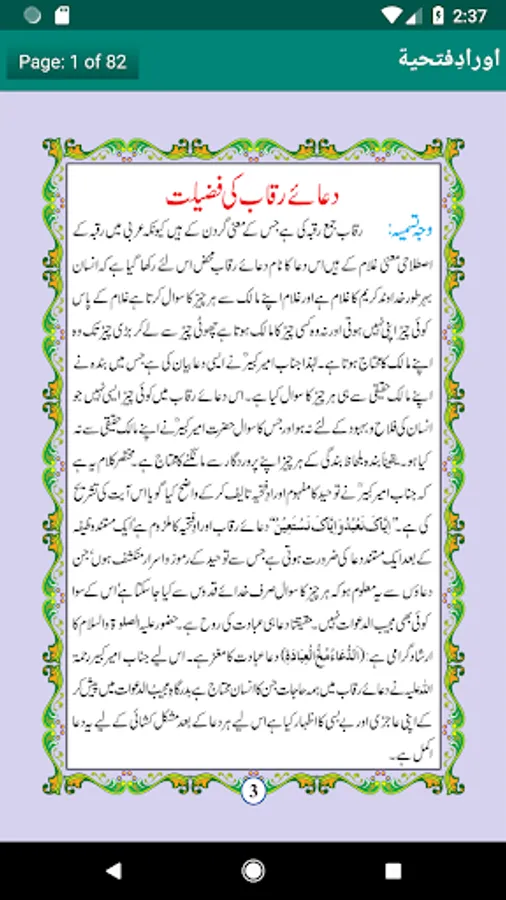 2:37
Page: 1 of 82
اورادِفتحیة
دعائے رقاب کی فضیلت
وجہ تسمیہ: رقاب جمع رقبہ کی ہے جس کے معنی گردن کے ہیں کیونکہ عربی میں رقبہ کے
اصطلاحی معنی غلام کے ہیں اس دعا کا نام دعائے رقاب محض اس لئے رکھا گیا ہے کہ انسان
بہرطور خداوند کریم کا غلام ہے اور غلام اپنے مالک سے ہر چیز کا سوال کرتا ہے غلام کے پاس
کوئی چیز اپنی نہیں ہوتی اور نہ وہ کسی چیز کا مالک ہوتا ہے چھوٹی چیز سے لے کر بڑی چیز تک وہ
اپنے مالک کا محتاج ہوتا ہے۔ لہٰذا جناب امیر کبیرؒ نے ایسی دعا بیان کی ہے جس میں بندہ نے
اپنے مالک حقیقی سے ہی ہر چیز کا سوال کیا ہے۔ اس دعائے رقاب میں کوئی چیز ایسی نہیں جو
انسان کی فلاح و بہبود کے لئے نہ ہو اور جس کا سوال حضرت امیر کبیرؒ نے اپنے مالک حقیقی سے نہ
کیا ہو۔ یقیناً بندہ بلحاظ بندگی کے ہر چیز اپنے پروردگار سے مانگنے کا محتاج ہے۔ مختصر کلام یہ ہے
کہ جناب امیر کبیرؒ نے توحید کا مفہوم اوراد فتحیہ تالیف کر کے واضح کیا گویا اس آیت کی تشریح
کی ہے۔ "اِیَّاکَ نَعْبُدُ وَاِیَّاکَ نَسْتَعِیْنُ" دعائے رقاب اوراد فتحیہ کا ملزوم ہے ایک مستند وظیفہ
کے بعد ایک مستند دعا کی ضرورت ہوتی ہے جس سے توحید کے رموز و اسرار منکشف ہوں' جن
دعاؤں سے یہ معلوم ہو کہ ہر چیز کا سوال صرف خدائے قدوس سے کیا جا سکتا ہے' اس کے سوا
کوئی بھی مجیب الدعوات نہیں۔ حقیقتاً دعا ہی عبادت کی روح ہے۔ حضور علیہ الصلوۃ والسلام کا
ارشاد گرامی ہے: (اَلدُّعَاءُ مُخُّ الْعِبَادَةِ) دعا عبادت کا مغز ہے۔ اس لیے جناب امیر کبیر رحمۃ
اللہ علیہ نے دعائے رقاب میں ہمہ حاجات جن کا انسان محتاج ہے بدرگاہِ مجیب الدعوات میں پیش کر
کے اپنی عاجزی اور بے بسی کا اظہار کیا ہے اس لیے ہر دعا کے بعد مشکل کشائی کے لیے یہ دعا
اکمل ہے۔
3